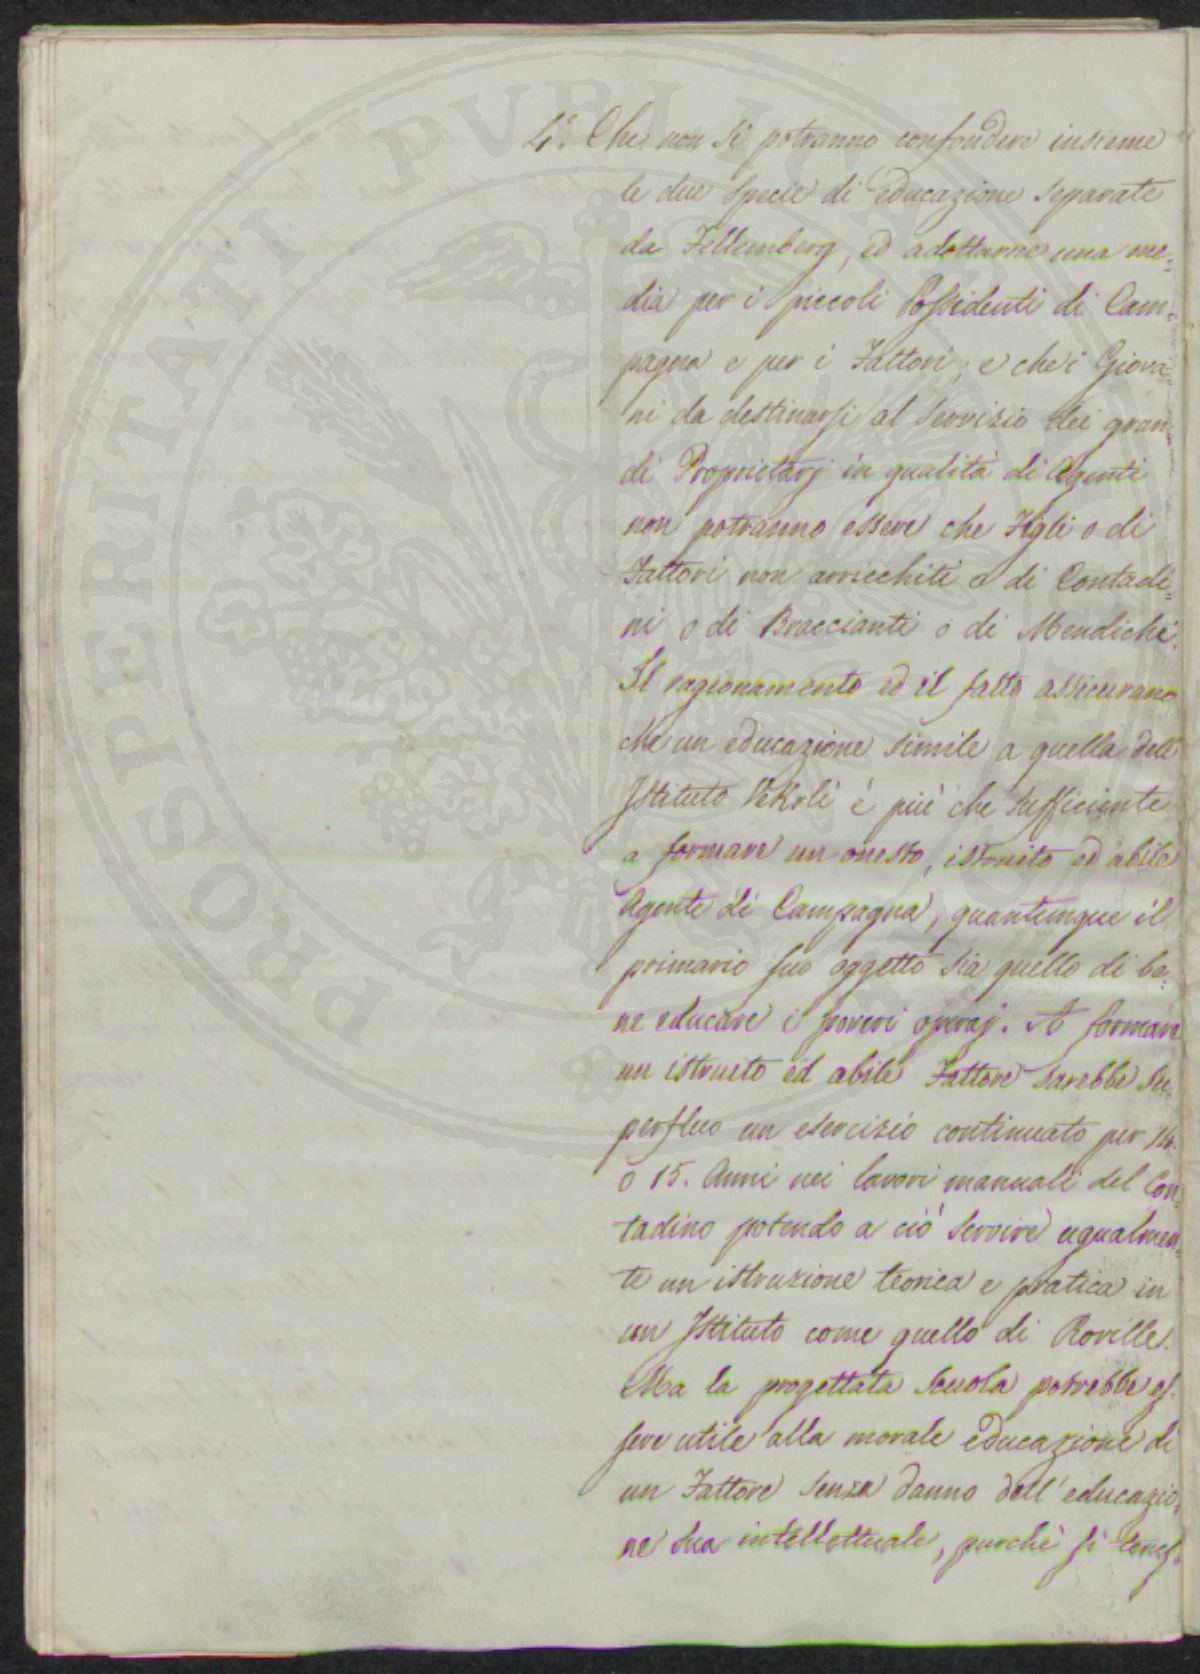 4.° Che non si potranno confondere insieme
le due specie di educazione separate
da Fellemberg, ed adottarne una me=
dia per i piccoli Possidenti di Cam=
pagna e per i Fattori; e che i Giova=
ni da destinarsi al servizio dei gran=
di Proprietarj in qualità di Agenti
non potranno essere che Figli o di
Fattori non arricchiti o di Contadi=
ni o di Braccianti o di Mendichi.
Il ragionamento ed il fatto assicurano
che un educazione simile a quella dell'
Istituto Vehrli è più che sufficiente
a formare un onesto, istruito ed abile
Agente di Campagna, quantunque il
primario suo oggetto sia quello di be=
ne educare i poveri operaj. A formare
un istruito ed abile Fattore sarebbe su=
perfluo un esercizio continuato per 14.
o 15. Anni nei lavori manuali del Con=
tadino potendo a ciò servire ugualmen=
te un istruzione teorica e pratica in
un Istituto come quello di Roville.
Ma la progettata Scuola potrebbe es=
sere utile alla morale educazione di
un Fattore senza danno dell'educazio=
ne sua intellettuale, purchè si tenes=
PROSPERITATI PVBLICAE